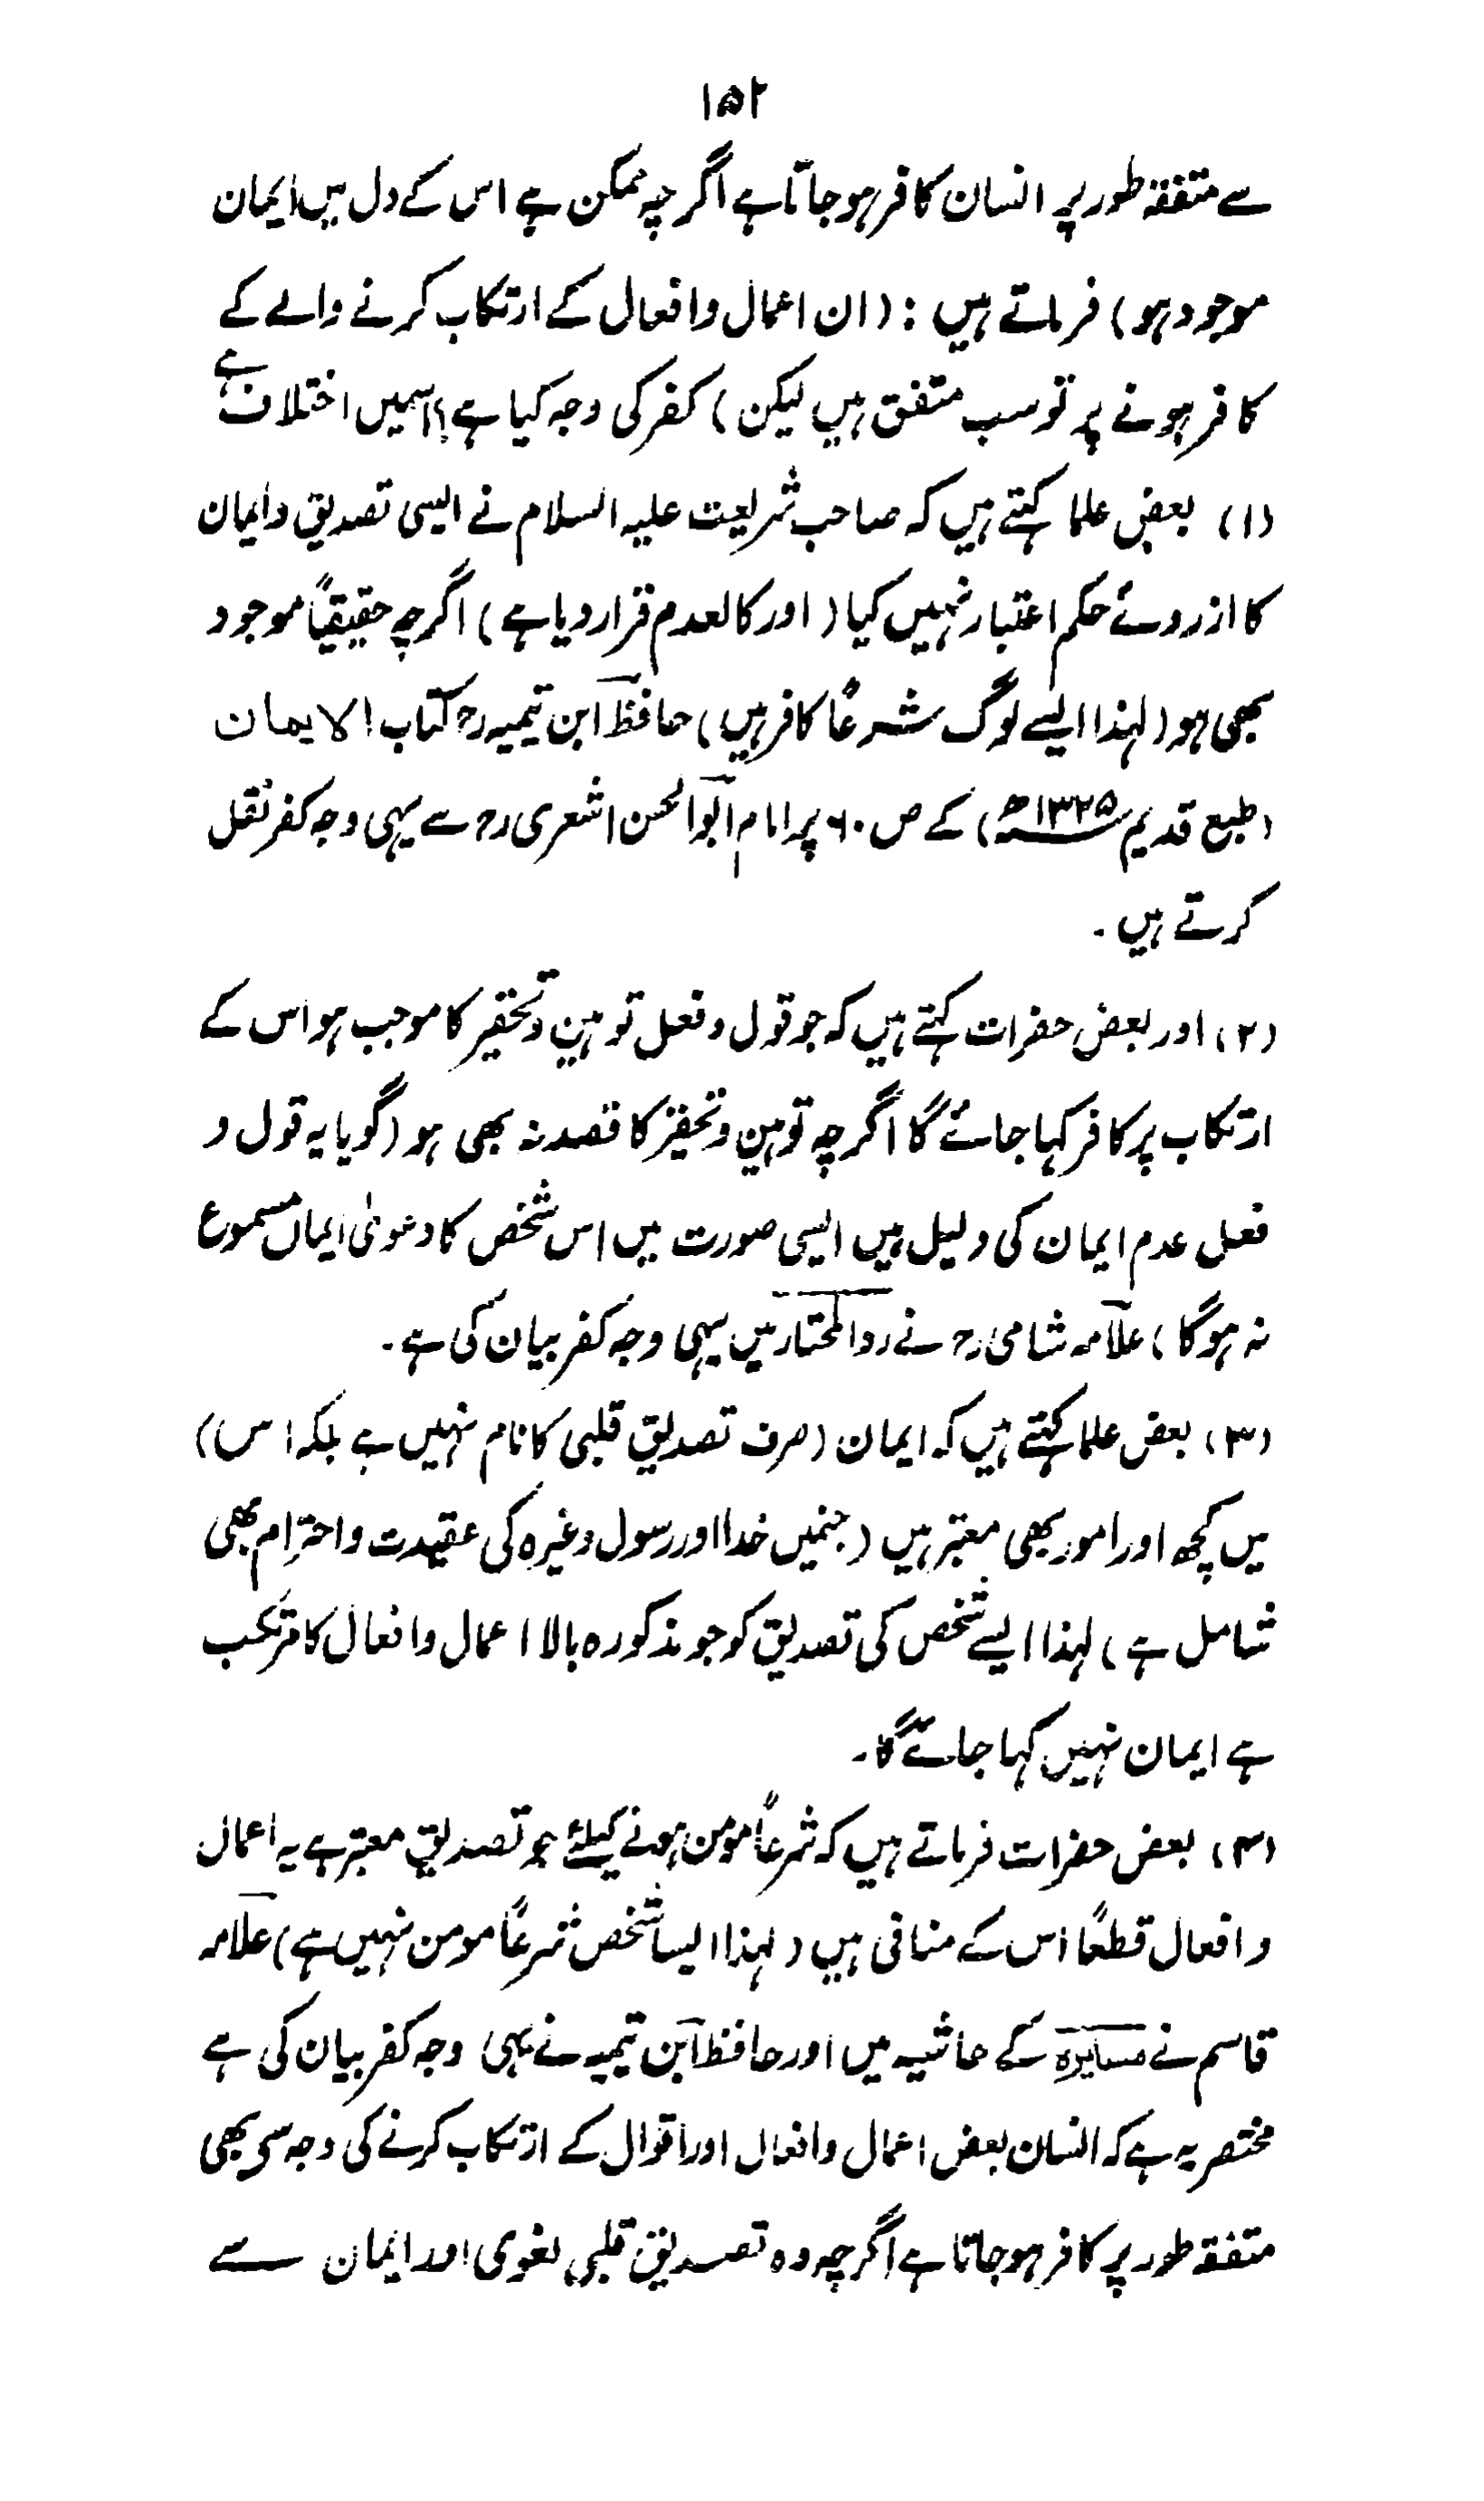 ۱۵۲
سے متفقہ طور پر انسان کافر ہو جاتا ہے اگرچہ ممکن ہے اس کے دل میں ایمان
موجود ہو) فرماتے ہیں : (ان اعمال و افعال کے ارتکاب کرنے والے کے
کافر ہونے پر تو سب متفق ہیں لیکن) کفر کی وجہ کیا ہے؟ اسمیں اختلاف ہے
(۱) بعض علما کہتے ہیں کہ صاحب شریعت علیہ السلام نے ایسی تصدیق و ایمان
کا ازروئے حکم اعتبار نہیں کیا (اور کالعدم قرار دیا ہے) اگرچہ حقیقتاً موجود
بھی ہو (لہذا ایسے لوگ شرعاً کافر ہیں) حافظ ابن تیمیہ رح کتاب الایمان
(طبع قدیم ۱۳۲۵ھ) کے ص ۶۰ پر امام ابوالحسن اشعری رح سے یہی وجہ کفر نقل
کرتے ہیں ۔
(۲) اور بعض حضرات کہتے ہیں کہ جو قول و فعل توہین و تحقیر کا موجب ہو اس کے
ارتکاب پر کافر کہا جائے گا اگرچہ توہین و تحقیر کا قصد نہ بھی ہو (گویا یہ قول و
فعل عدم ایمان کی دلیل ہیں ایسی صورت میں اس شخص کا دعویٰ ایمان مسموع
نہ ہوگا) علامہ شامی رح نے ردالمختار میں یہی وجہ کفر بیان کی ہے ۔
(۳) بعض علما کہتے ہیں کہ ایمان (صرف تصدیق قلبی کا نام نہیں ہے بلکہ اس)
میں کچھ اور امور بھی معتبر ہیں (جنمیں خدا اور رسول وغیرہ کی عقیدت و احترام بھی
شامل ہے) لہذا ایسے شخص کی تصدیق کو جو مذکورہ بالا اعمال و افعال کا مرتکب
ہے ایمان نہیں کہا جائے گا۔
(۴) بعض حضرات فرماتے ہیں کہ شرعاً مومن ہونے کیلئے جو تصدیق معتبر ہے یہ اعمال
و افعال قطعاً اس کے منافی ہیں (لہذا ایسا شخص شرعاً مومن نہیں ہے) علامہ
قاسم نے مسایرہ کے حاشیہ میں اور حافظ ابن تیمیہ نے یہی وجہ کفر بیان کی ہے
مختصر یہ ہے کہ انسان بعض اعمال و افعال اور اقوال کے ارتکاب کرنے کی وجہ سی بھی
متفقہ طور پر کافر ہو جاتا ہے اگرچہ وہ تصدیق قلبی لغوی اور ایمان سے